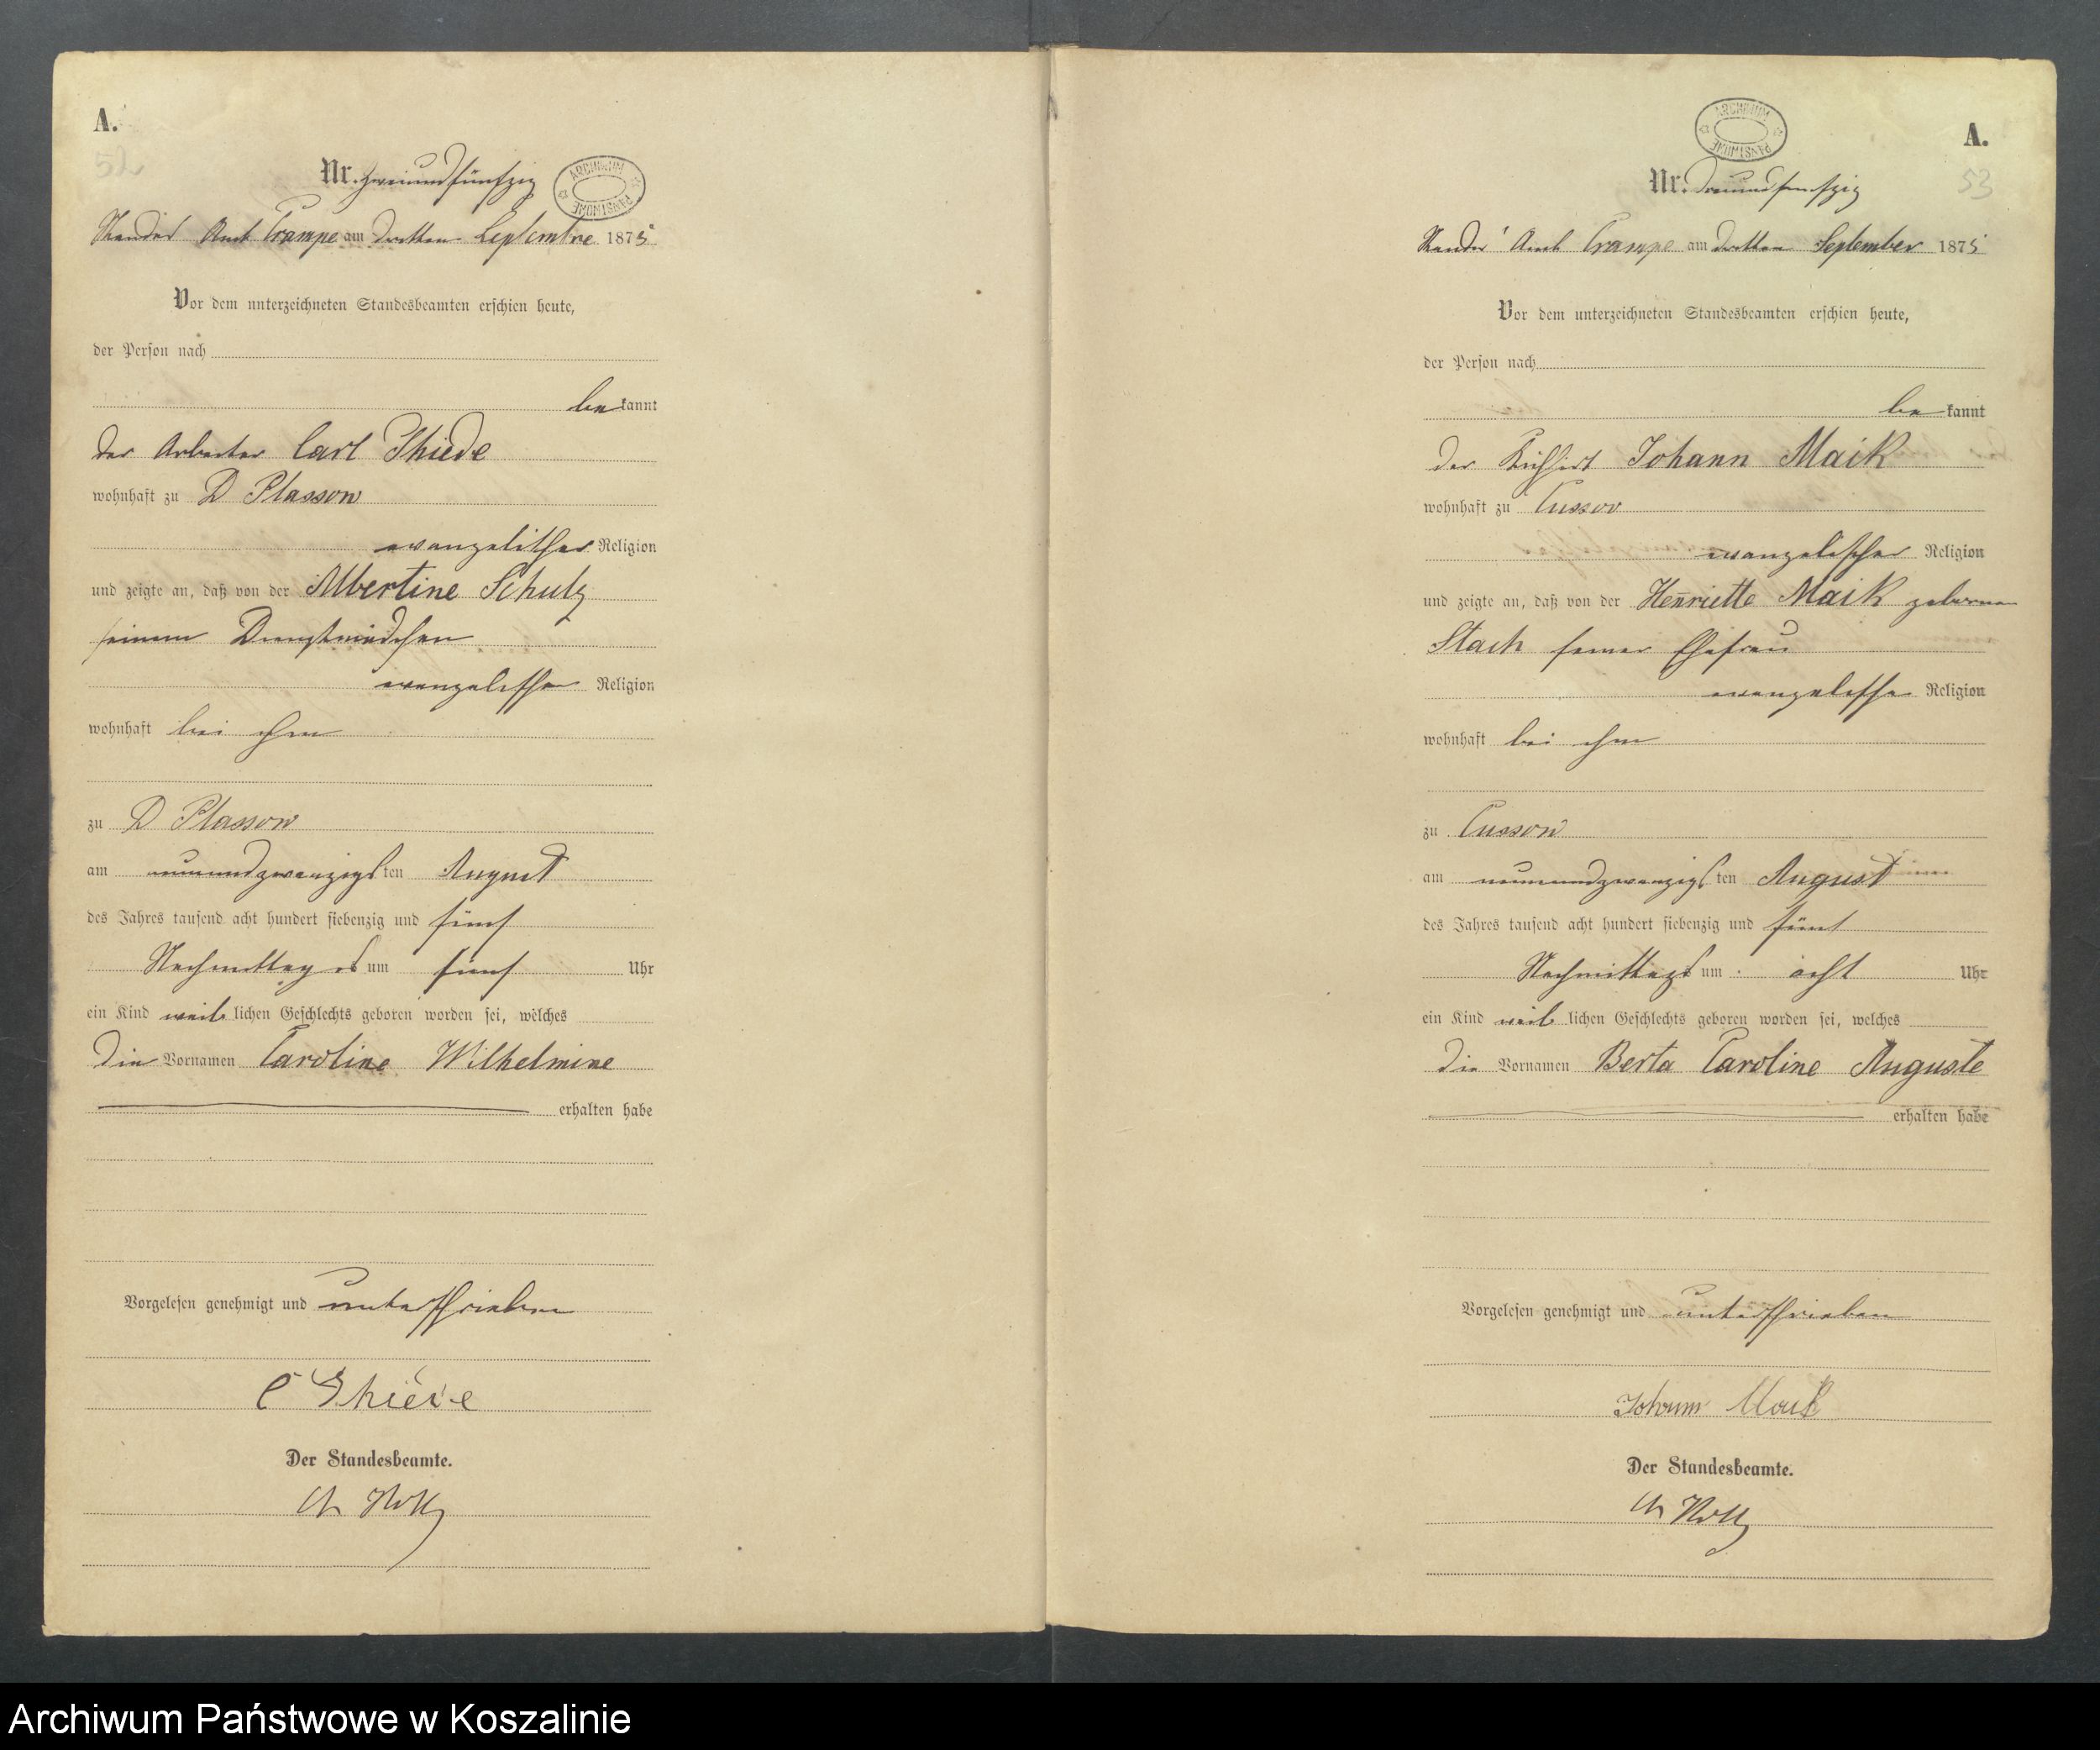 A.
52
Nr. zweiundfünfzig
ARCHIWUM PAŃSTWOWE
Standes Amt Trampe am dritten Septembre 1875
Vor dem unterzeichneten Standesbeamten erschien heute,
der Person nach
bekannt
der Arbeiter Carl Thiede
wohnhaft zu D Plassow
evangelischer Religion
und zeigte an, daß von der Albertine Schulz
seinem Dienstmädchen
evangelischer Religion
wohnhaft bei ihm
zu D Plassow
am neunundzwanzigsten August
des Jahres tausend acht hundert siebenzig und fünf
Nachmittags um fünf Uhr
ein Kind weiblichen Geschlechts geboren worden sei, welches
die Vornamen Caroline Wilhelmine
erhalten habe
Vorgelesen genehmigt und unterschrieben
C Thiede
Der Standesbeamte.
A.
53
ARCHIWUM PAŃSTWOWE
Nr. dreiundfunfzig
Standes Amt Trampe am dritten September 1875
Vor dem unterzeichneten Standesbeamten erschien heute,
der Person nach
bekannt
der Kuhhirt Johann Maik
wohnhaft zu Cussow
evangelischer Religion
und zeigte an, daß von der Henriette Maik geborne
Stach seiner Ehefrau
evangelischer Religion
wohnhaft bei ihm
zu Cussow
am neunundzwanzigsten August
des Jahres tausend acht hundert siebenzig und fünf
Nachmittags um acht Uhr
ein Kind weiblichen Geschlechts geboren worden sei, welches
die Vornamen Berta Caroline Auguste
erhalten habe
Vorgelesen genehmigt und unterschrieben
Johann Maik
Der Standesbeamte.
Archiwum Państwowe w Koszalinie